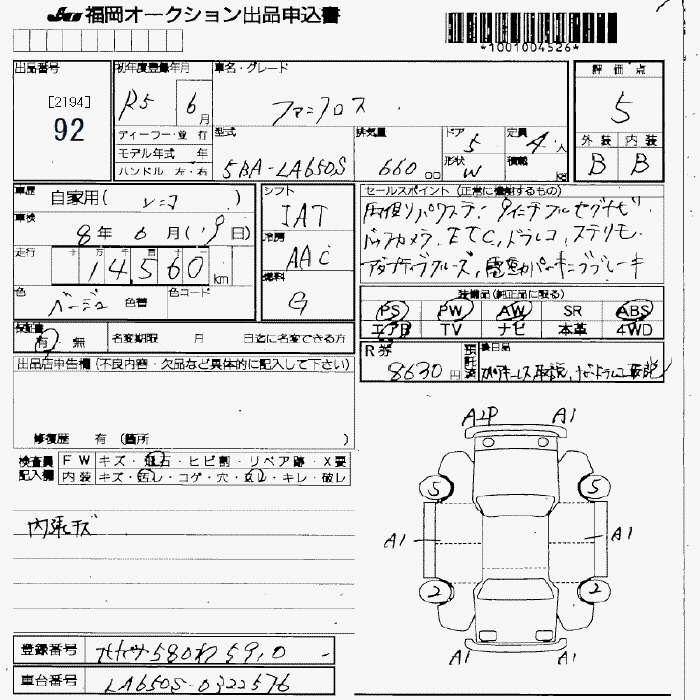 JU 福岡オークション出品申込書
*1001004526*
出品番号
[2194]
92
初年度登録年月
R5 6月
車名・グレード
ファンクロス
評価点
5
外装 内装
B B
ディーラー・並行
モデル年式 年
ハンドル 左・右
型式
5BA-LA650S
排気量
660 cc
ドア 5
形状 W
定員 4人
積載 kg
車歴 自家用( )
車検 8年6月(19日)
走行 14,560 km
色 ベージュ 色替
色コード
シフト IAT
冷房 AAC
燃料 G
セールスポイント (正常に機動するもの)
両側リパワスラ. 9インチフルセグナビ.
バックカメラ. ETC,ドラレコ,ステリモ.
アダプティブクルーズ,電動パーキングブレーキ
装備品(純正品に限る)
PS PW AW SR ABS
エアB TV ナビ 本革 4WD
保証書 有 無
名変期限 月 日迄に名変できる方
R券 8630円
預託済
後日品
出品店申告欄(不良内容・欠品など具体的に記入して下さい)
修復歴 有 (箇所 )
検査員記入欄
FW キズ・飛石・ヒビ割・リペア跡・X要
内装 キズ・汚レ・コゲ・穴・スレ・キレ・破レ
内張キズ
A2P A1
5 5
A1 A1
2 2
A1 A1
登録番号 580わ5910
車台番号 LA650S-0322576